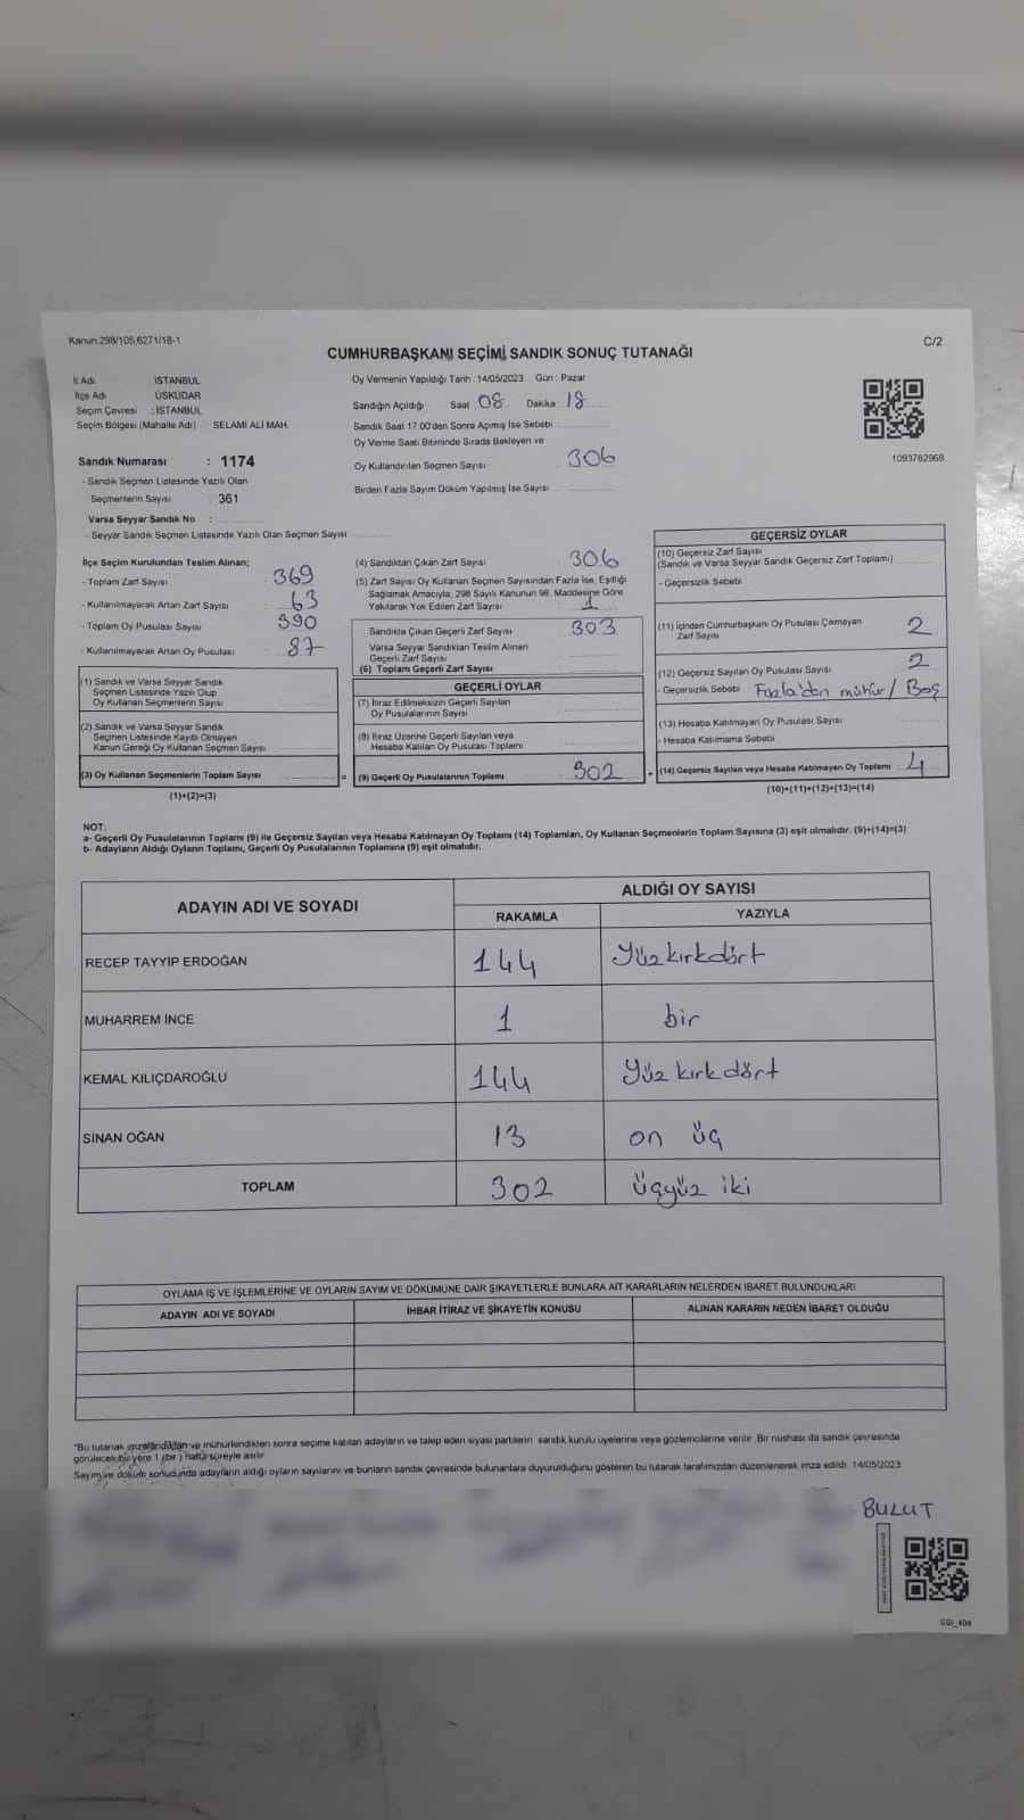 Kanun:298/105,6271/18-1
C/2
CUMHURBAŞKANI SEÇİMİ SANDIK SONUÇ TUTANAĞI
İl Adı İSTANBUL
İlçe Adı ÜSKÜDAR
Seçim Çevresi :İSTANBUL
Seçim Bölgesi (Mahalle Adı) SELAMİ ALİ MAH.
Sandık Numarası : 1174
- Sandık Seçmen Listesinde Yazılı Olan
Seçmenlerin Sayısı 361
Varsa Seyyar Sandık No :
- Seyyar Sandık Seçmen Listesinde Yazılı Olan Seçmen Sayısı
Oy Vermenin Yapıldığı Tarih :14/05/2023 Gün : Pazar
Sandığın Açıldığı Saat 08 Dakika 18
Sandık Saat 17:00'den Sonra Açılmış İse Sebebi
Oy Verme Saati Bitiminde Sırada Bekleyen ve
Oy Kullandırılan Seçmen Sayısı 306
Birden Fazla Sayım Döküm Yapılmış İse Sayısı
1093762968
İlçe Seçim Kurulundan Teslim Alınan;
- Toplam Zarf Sayısı 369
- Kullanılmayarak Artan Zarf Sayısı 63
- Toplam Oy Pusulası Sayısı 390
- Kullanılmayarak Artan Oy Pusulası 87
(1) Sandık ve Varsa Seyyar Sandık
Seçmen Listesinde Yazılı Olup
Oy Kullanan Seçmenlerin Sayısı
(2) Sandık ve Varsa Seyyar Sandık
Seçmen Listesinde Kayıtlı Olmayan
Kanun Gereği Oy Kullanan Seçmen Sayısı
(3) Oy Kullanan Seçmenlerin Toplam Sayısı =
(1)+(2)=(3)
(4) Sandıktan Çıkan Zarf Sayısı 306
(5) Zarf Sayısı Oy Kullanan Seçmen Sayısından Fazla İse, Eşitliği
Sağlamak Amacıyla, 298 Sayılı Kanunun 98. Maddesine Göre
Yakılarak Yok Edilen Zarf Sayısı 1
Sandıkta Çıkan Geçerli Zarf Sayısı 303
Varsa Seyyar Sandıktan Teslim Alınan
Geçerli Zarf Sayısı
(6) Toplam Geçerli Zarf Sayısı
GEÇERLİ OYLAR
(7) İtiraz Edilmeksizin Geçerli Sayılan
Oy Pusulalarının Sayısı
(8) İtiraz Üzerine Geçerli Sayılan veya
Hesaba Katılan Oy Pusulası Toplamı
(9) Geçerli Oy Pusulalarının Toplamı 302 +
GEÇERSİZ OYLAR
(10) Geçersiz Zarf Sayısı
(Sandık ve Varsa Seyyar Sandık Geçersiz Zarf Toplamı)
- Geçersizlik Sebebi
(11) İçinden Cumhurbaşkanı Oy Pusulası Çıkmayan
Zarf Sayısı 2
(12) Geçersiz Sayılan Oy Pusulası Sayısı 2
- Geçersizlik Sebebi Fazla'dan mühür / Boş
(13) Hesaba Katılmayan Oy Pusulası Sayısı
- Hesaba Katılmama Sebebi
(14) Geçersiz Sayılan veya Hesaba Katılmayan Oy Toplamı 4
(10)+(11)+(12)+(13)=(14)
NOT:
a- Geçerli Oy Pusulalarının Toplamı (9) ile Geçersiz Sayılan veya Hesaba Katılmayan Oy Toplamı (14) Toplamları, Oy Kullanan Seçmenlerin Toplam Sayısına (3) eşit olmalıdır. (9)+(14)=(3)
b- Adayların Aldığı Oyların Toplamı, Geçerli Oy Pusulalarının Toplamına (9) eşit olmalıdır.
ADAYIN ADI VE SOYADI ALDIĞI OY SAYISI
RAKAMLA YAZIYLA
RECEP TAYYİP ERDOĞAN 144 Yüzkırkdört
MUHARREM İNCE 1 bir
KEMAL KILIÇDAROĞLU 144 Yüz kırk dört
SİNAN OĞAN 13 on üç
TOPLAM 302 üçyüz iki
OYLAMA İŞ VE İŞLEMLERİNE VE OYLARIN SAYIM VE DÖKÜMÜNE DAİR ŞİKAYETLERLE BUNLARA AİT KARARLARIN NELERDEN İBARET BULUNDUKLARI
ADAYIN ADI VE SOYADI İHBAR İTİRAZ VE ŞİKAYETİN KONUSU ALINAN KARARIN NEDEN İBARET OLDUĞU
"Bu tutanak imzalandıktan ve mühürlendikten sonra seçime katılan adayların ve talep eden siyasi partilerin sandık kurulu üyelerine veya gözlemcilerine verilir. Bir nüshası da sandık çevresinde
görülecek bir yere 1 (bir) hafta süreyle asılır.
Sayım ve döküm sonucunda adayların aldığı oyların sayılarını ve bunların sandık çevresinde bulunanlara duyurulduğunu gösteren bu tutanak tarafımızdan düzenlenerek imza edildi. 14/05/2023
BULUT